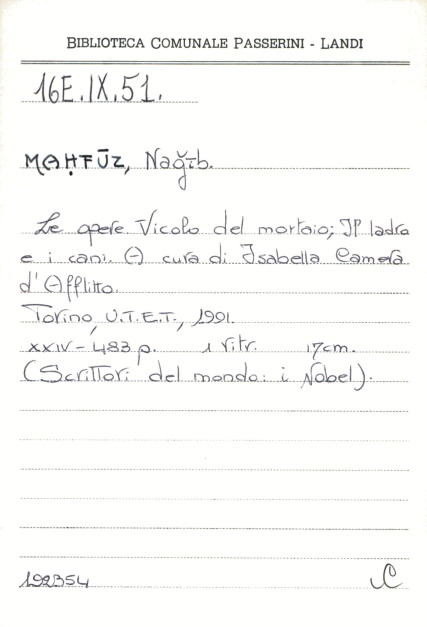 BIBLIOTECA COMUNALE PASSERINI - LANDI
16E.IX.51.
MAḤFŪZ, Naǧīb.
Le opere Vicolo del mortaio; Il ladro
e i cani. A cura di Isabella Camera
d'Afflitto.
Torino, U.T.E.T., 1991.
XXIV-483 p. 1 ritr. 17cm.
(Scrittori del mondo: i Nobel).
192354